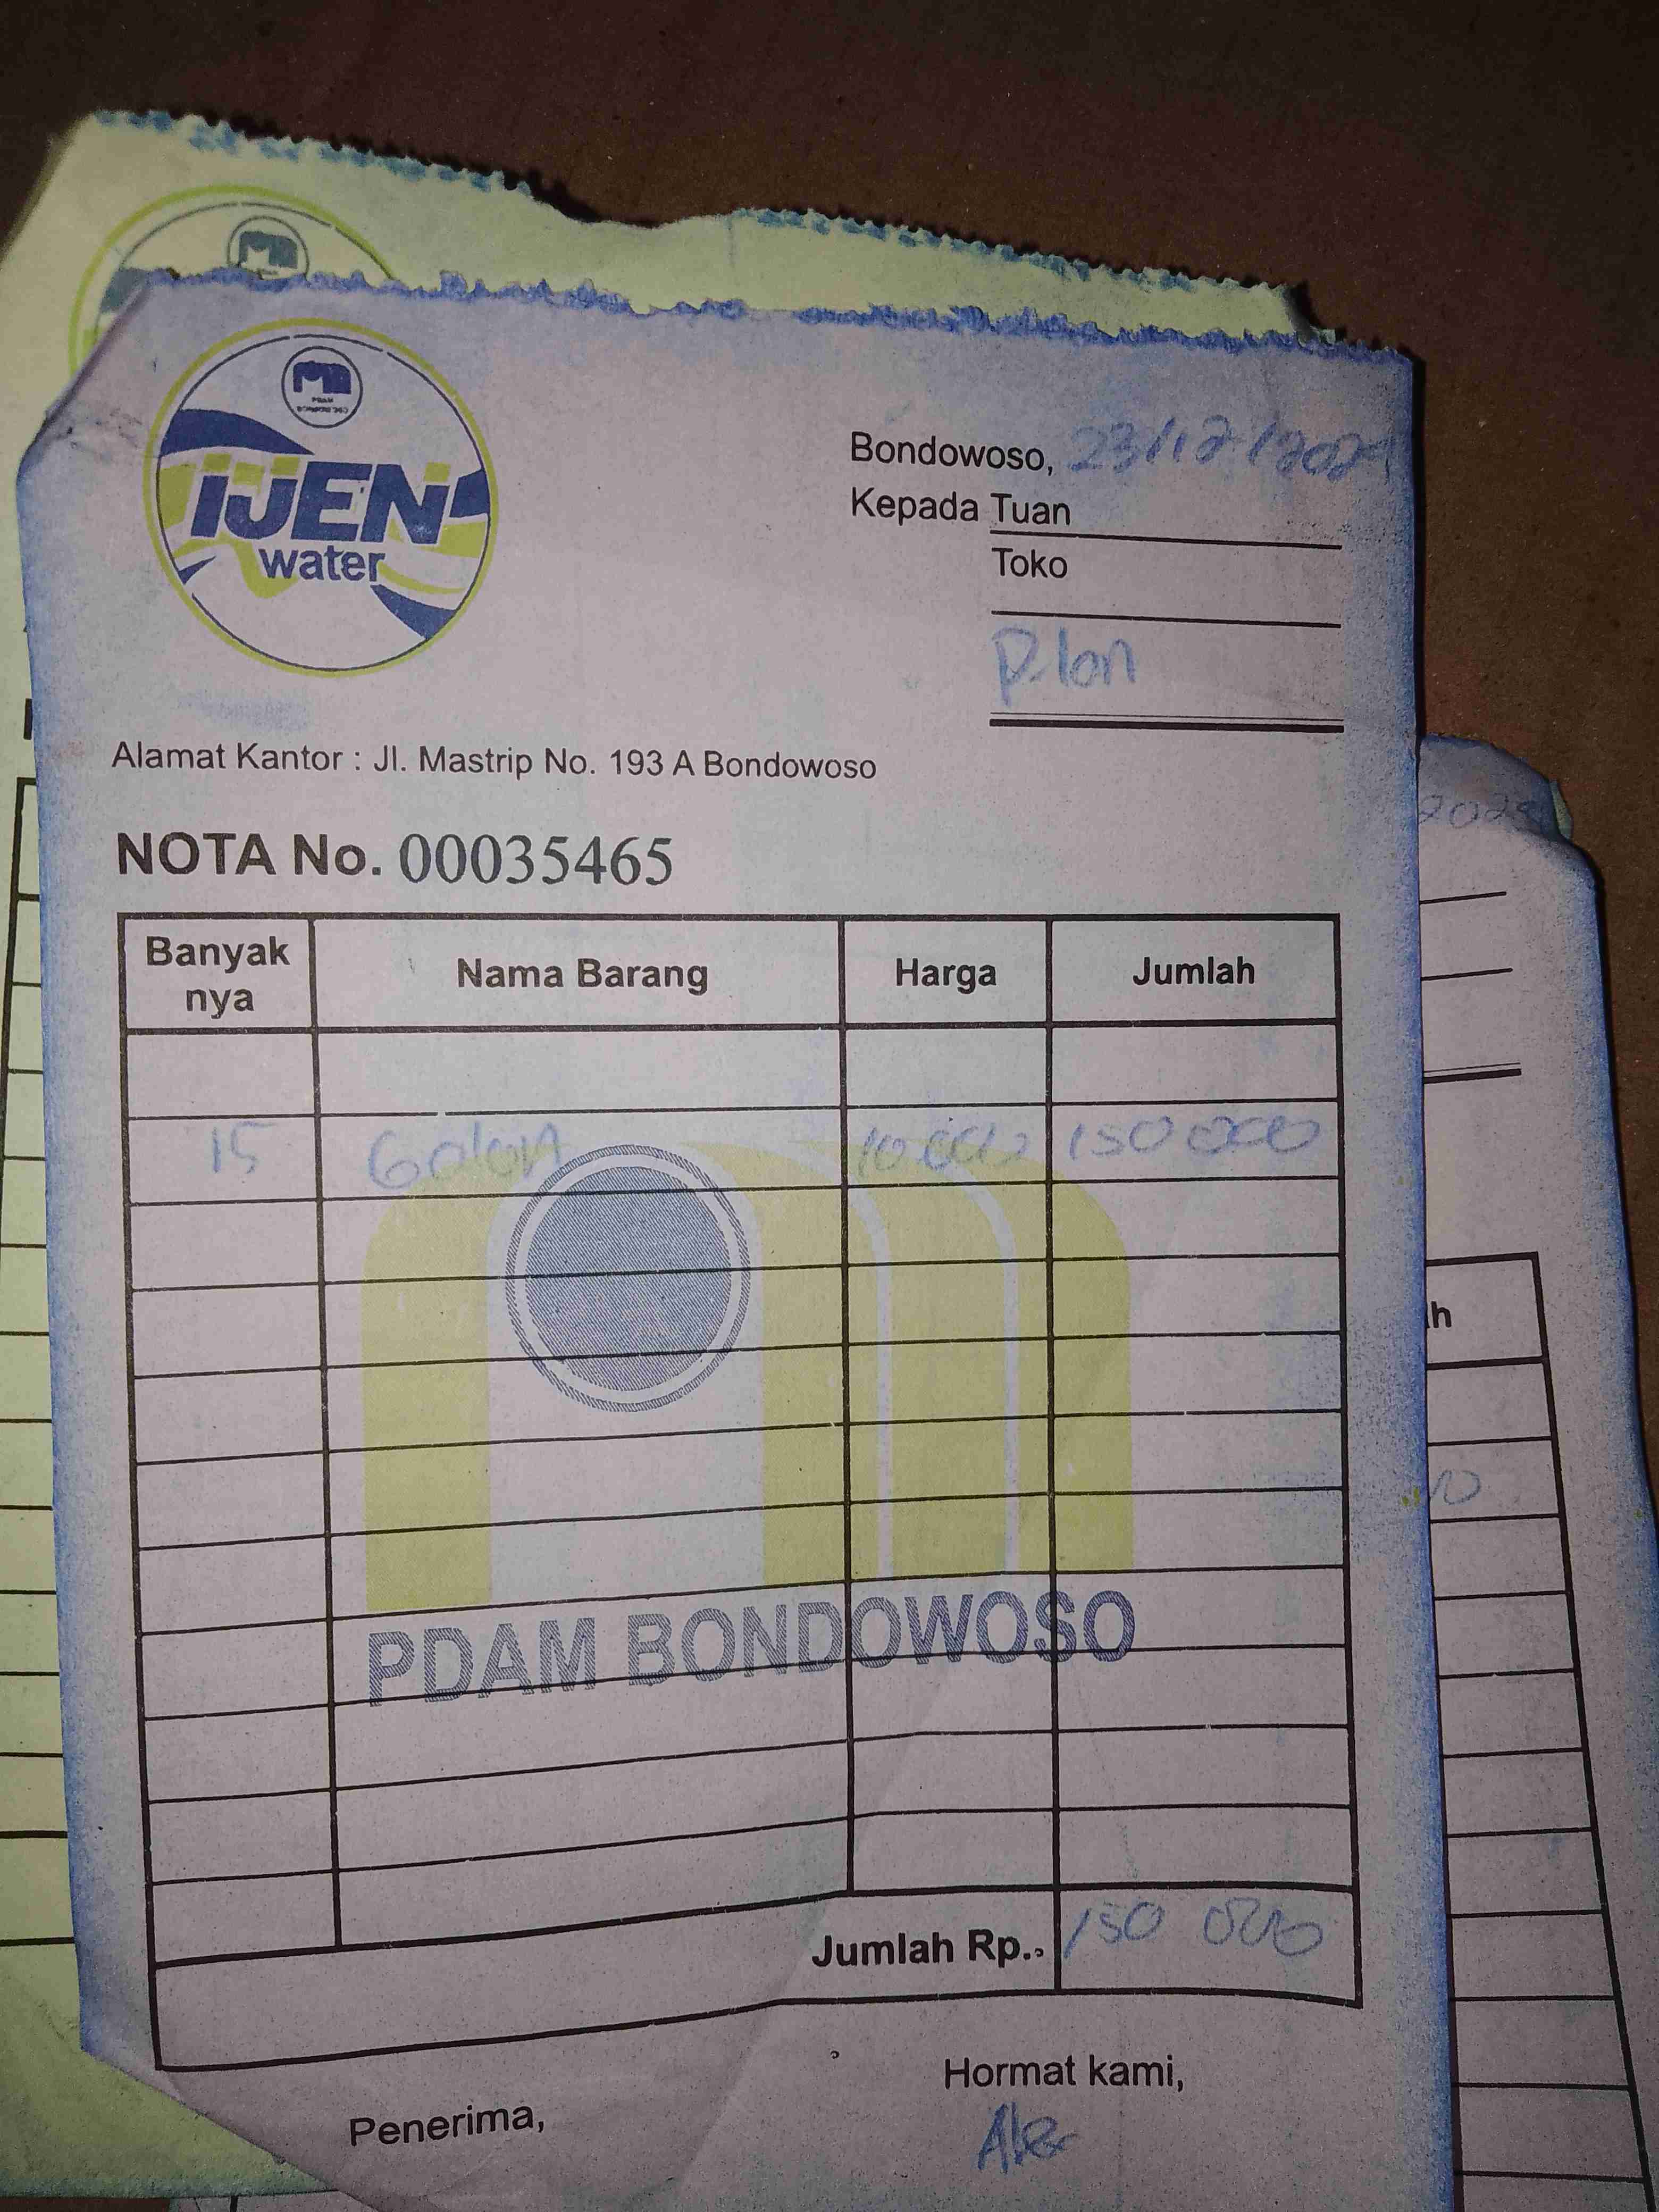 PDAM
BONDOWOSO
IJEN
water
Bondowoso, 23/12/2024
Kepada Tuan
Toko
P. Ion
Alamat Kantor : Jl. Mastrip No. 193 A Bondowoso
NOTA No. 00035465
Banyak nya Nama Barang Harga Jumlah
15 Galon 10 000 150 000
PDAM BONDOWOSO
Jumlah Rp. 150 000
Penerima,
Hormat kami,